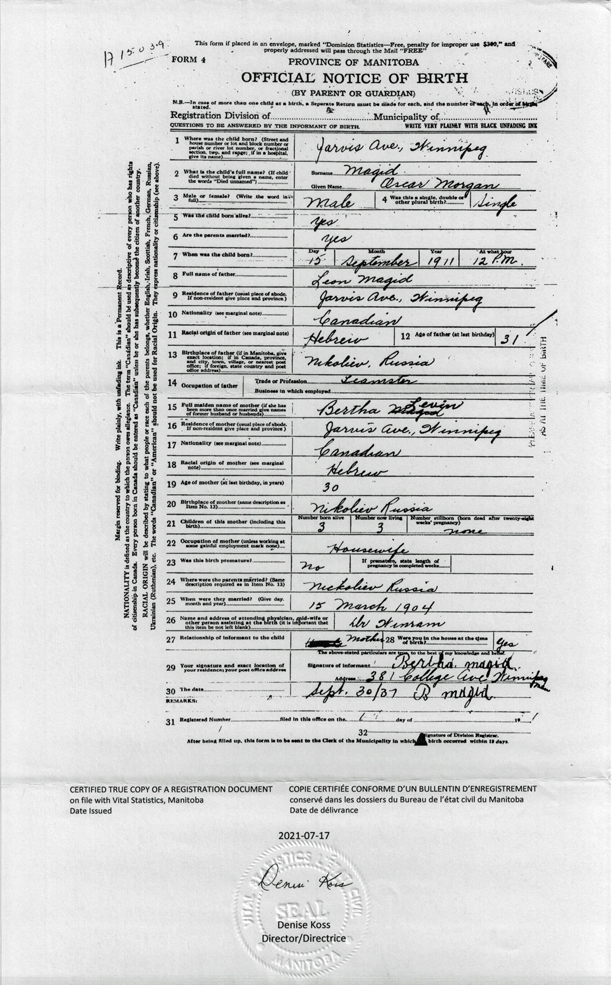 17 15039
This form if placed in an envelope, marked "Dominion Statistics—Free, penalty for improper use $300," and
properly addressed will pass through the Mail "FREE"
FORM 4
PROVINCE OF MANITOBA
OFFICIAL NOTICE OF BIRTH
(BY PARENT OR GUARDIAN)
N.B.—In case of more than one child at a birth, a Separate Return must be made for each, and the number of each, in order of birth
stated.
Registration Division of Municipality of
QUESTIONS TO BE ANSWERED BY THE INFORMANT OF BIRTH. WRITE VERY PLAINLY WITH BLACK UNFADING INK
1 Where was the child born? (Street and
house number or lot and block number or
parish or river lot number, or fractional
section, twp. and range; if in a hospital,
give its name) Jarvis Ave., Winnipeg
2 What is the child's full name? (If child
died without being given a name, enter
the words "Died unnamed") Surname Magid
Given Name Oscar Morgan
3 Male or female? (Write the word in
full) Male 4 Was this a single, double or
other plural birth? Single
5 Was the child born alive? yes
6 Are the parents married? yes
7 When was the child born? Day 15 Month September Year 1911 At what hour 12 P.M.
8 Full name of father Leon Magid
9 Residence of father (usual place of abode.
If non-resident give place and province) Jarvis Ave., Winnipeg
10 Nationality (see marginal note) Canadian
11 Racial origin of father (see marginal note) Hebrew 12 Age of father (at last birthday) 31
13 Birthplace of father (if in Manitoba, give
exact location; if in Canada, province,
and city, town, village, or nearest post
office; if foreign, state country and post
office address) Nikoliev, Russia
14 Occupation of father Trade or Profession Teamster
Business in which employed
15 Full maiden name of mother (if she has
been more than once married give names
of former husband or husbands) Bertha Levin
16 Residence of mother (usual place of abode.
If non-resident give place and province) Jarvis Ave., Winnipeg
17 Nationality (see marginal note) Canadian
18 Racial origin of mother (see marginal
note) Hebrew
19 Age of mother (at last birthday, in years) 30
20 Birthplace of mother (same description as
Item No. 13) Nikoliev Russia
21 Children of this mother (including this
birth) Number born alive 3 Number now living 3 Number stillborn (born dead after twenty-eight
weeks' pregnancy) none
22 Occupation of mother (unless working at
some gainful employment mark none) Housewife
23 Was this birth premature? no If premature, state length of
pregnancy in completed weeks
24 Where were the parents married? (Same
description required as in Item No. 13) Nickoliev Russia
25 When were they married? (Give day,
month and year) 15 March 1904
26 Name and address of attending physician, mid-wife or
other person assisting at the birth (it is important that
this item be not left blank) Dr Winram
27 Relationship of informant to the child Mother 28 Were you in the house at the time
of birth? Yes
The above-stated particulars are true to the best of my knowledge and belief.
29 Your signature and exact location of
your residence; your post office address Signature of informant Bertha Magid
Address 381 College Ave Winnipeg
Man
30 The date Sept. 30/37 B Magid
REMARKS:
31 Registered Number filed in this office on the day of 19
32 Signature of Division Registrar.
After being filled up, this form is to be sent to the Clerk of the Municipality in which birth occurred within 10 days.
Margin reserved for binding. Write plainly, with unfading ink. This is a Permanent Record.
NATIONALITY is defined as the country to which the person owes allegiance. The term "Canadian" should be used as descriptive of every person who has rights
of citizenship in Canada. Every person born in Canada should be entered as "Canadian" unless he or she has subsequently become the citizen of another country.
RACIAL ORIGIN will be described by stating to what people or race each of the parents belongs, whether English, Irish, Scottish, French, German, Russian,
Ukrainian (Ruthenian), etc. The words "Canadian" or "American" should not be used for Racial Origin. They express nationality or citizenship (see above).
AS AT THE TIME OF BIRTH
CERTIFIED TRUE COPY OF A REGISTRATION DOCUMENT
on file with Vital Statistics, Manitoba
Date Issued
COPIE CERTIFIÉE CONFORME D'UN BULLENTIN D'ENREGISTREMENT
conservé dans les dossiers du Bureau de l'état civil du Manitoba
Date de délivrance
2021-07-17
Denise Koss
VITAL STATISTICS
SEAL
MANITOBA
Denise Koss
Director/Directrice